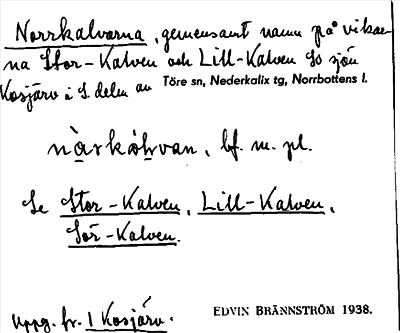 Norrkalvarna, gemensamt namn på vikar-
na Stor-Kalven och Lill-Kalven i sjön
Kosjärv i S. delen av Töre sn, Nederkalix tg, Norrbottens l.
nàrkàhvan, bf. m. pl.
Se Stor-Kalven, Lill-Kalven,
Sör-Kalven.
Uppg. fr. 1 Kosjärv.
EDVIN BRÄNNSTRÖM 1938.